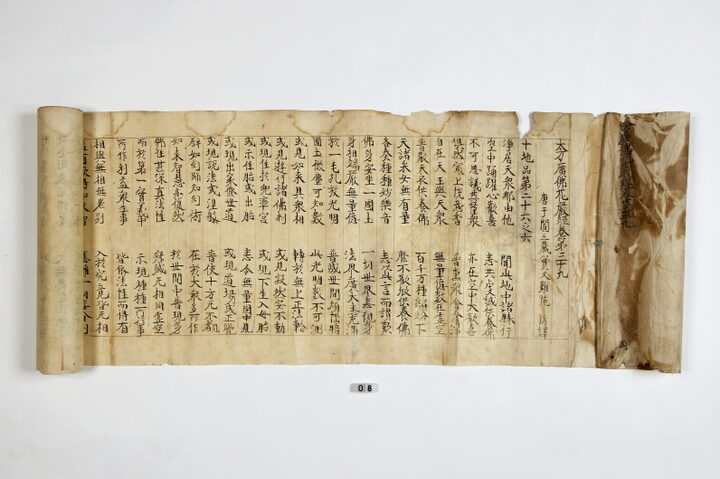 大方廣佛花嚴經卷第三十九
唐于闐三藏實叉難陁 新譯
十地品第二十六之六
淨居天衆那由他 聞此地中諸勝行
空中踊躍心歡喜 悉共虔誠供養佛
不可思議菩薩衆 亦在空中大歡喜
俱然最上悅意香 普熏衆會令清淨
自在天王與天衆 無量億數在虛空
普散天衣供養佛 百千万種繽紛下
天諸采女無有量 靡不歡欣供養佛
各奏種種妙樂音 悉以此言而讚歎
佛身安坐一國土 一切世界悉現身
身相端嚴無量億 法界廣大悉充滿
於一毛孔放光明 普滅世間煩惱暗
國土微塵可知數 此光明數不可測
或見如來具衆相 轉於無上正法輪
或見遊行諸佛刹 或見寂然安不動
或現住於兜率宮 或現下生入母胎
或示住胎或出胎 悉令無量國中見
或現出家修世道 或現道場成正覺
或現說法或涅槃 普使十方無不覩
譬如幻師知幻術 在於大衆多所作
如來智慧亦復然 於世間中普現身
佛住甚深真法性 寂滅無相同虛空
而於第一實義中 示現種種所行事
所作利益衆生事 皆依法性而得有
相與無相無差別 入於究竟皆無相
08